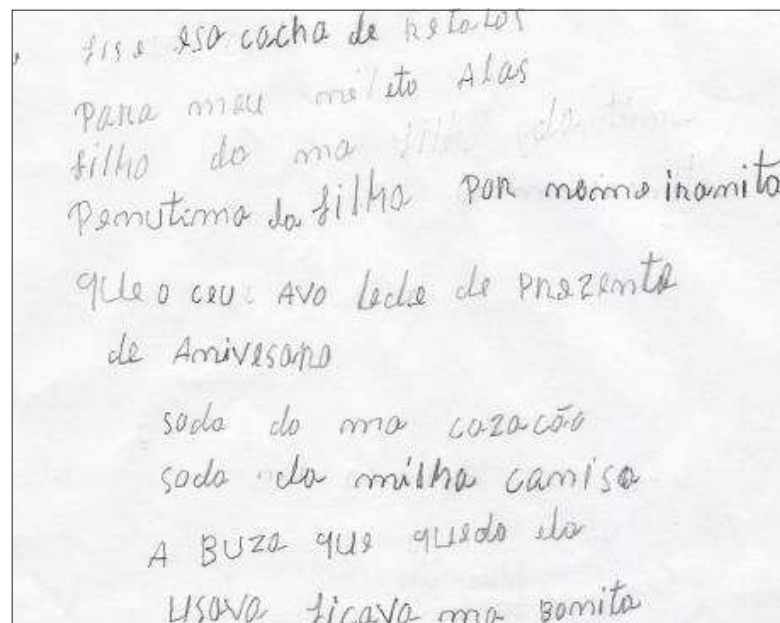 fise esa cacha de retalos
Para meu neleto Alas
filho do ma
Penutima da filha Por nome iramita
que o ceu Avo lede de Prezente
de Anivesaro
soda do ma cozacão
soda da milha camisa
A Buza que quedo ela
usava ficava ma Bomita